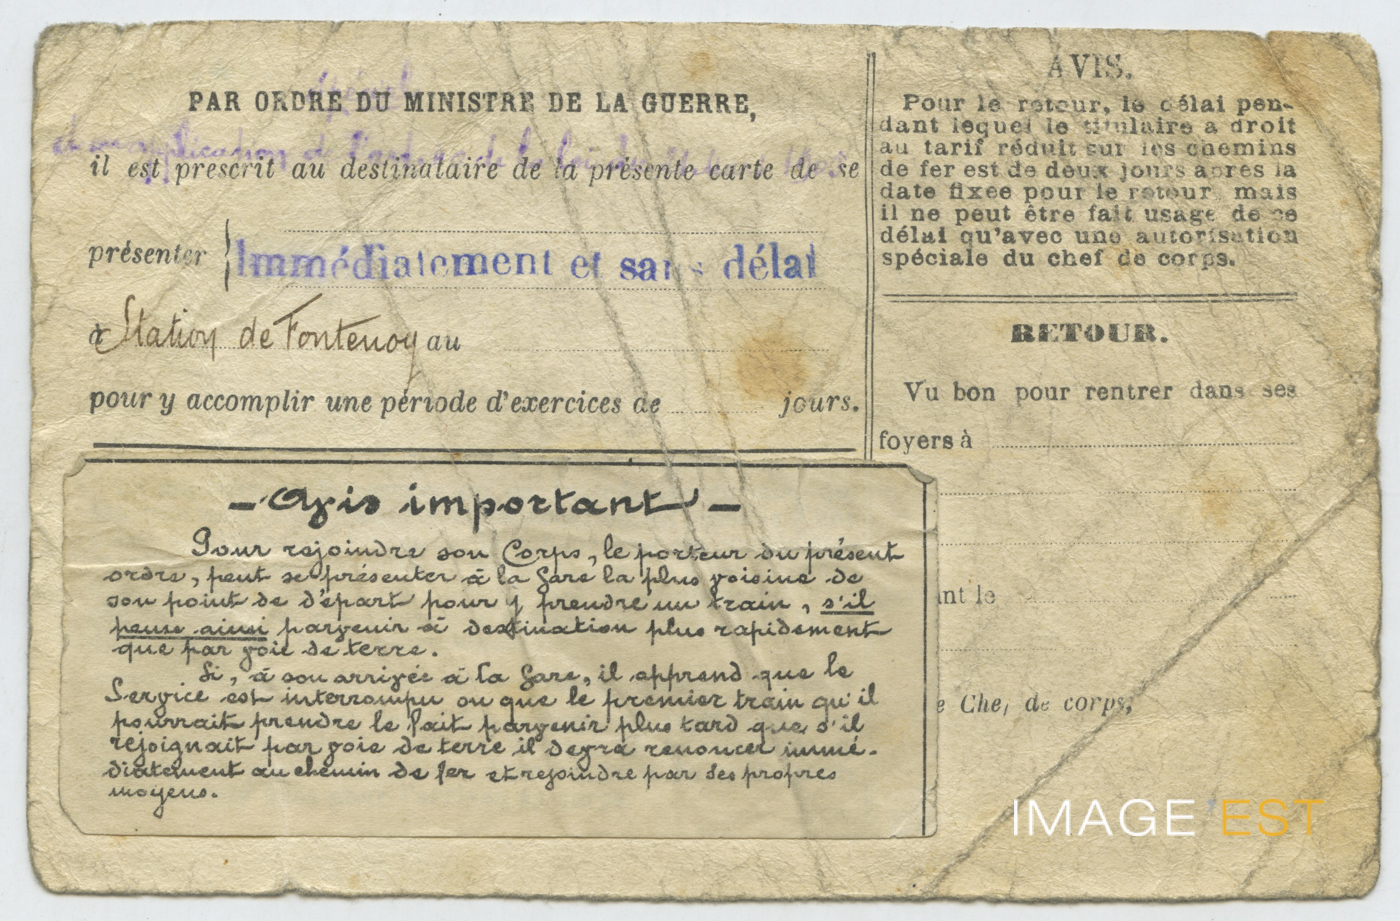 PAR ORDRE DU MINISTRE DE LA GUERRE,
en application de la loi du
il est prescrit au destinataire de la présente carte de se
présenter { Immédiatement et sans délai
à Station de Fontenoy au
pour y accomplir une période d'exercices de jours.
AVIS.
Pour le retour, le délai pen-
dant lequel le titulaire a droit
au tarif réduit sur les chemins
de fer est de deux jours après la
date fixée pour le retour, mais
il ne peut être fait usage de ce
délai qu'avec une autorisation
spéciale du chef de corps.
RETOUR.
Vu bon pour rentrer dans ses
foyers à
ant le
e Chef de corps,
- Avis important -
Pour rejoindre son Corps, le porteur du présent
ordre, peut se présenter à la Gare la plus voisine de
son point de départ pour y prendre un train, s'il
pense ainsi parvenir à destination plus rapidement
que par voie de terre.
Si, à son arrivée à la Gare, il apprend que le
Service est interrompu ou que le premier train qu'il
pourrait prendre le fait parvenir plus tard que s'il
rejoignait par voie de terre il devra renoncer immé-
diatement au chemin de fer et rejoindre par ses propres
moyens.
IMAGE'EST